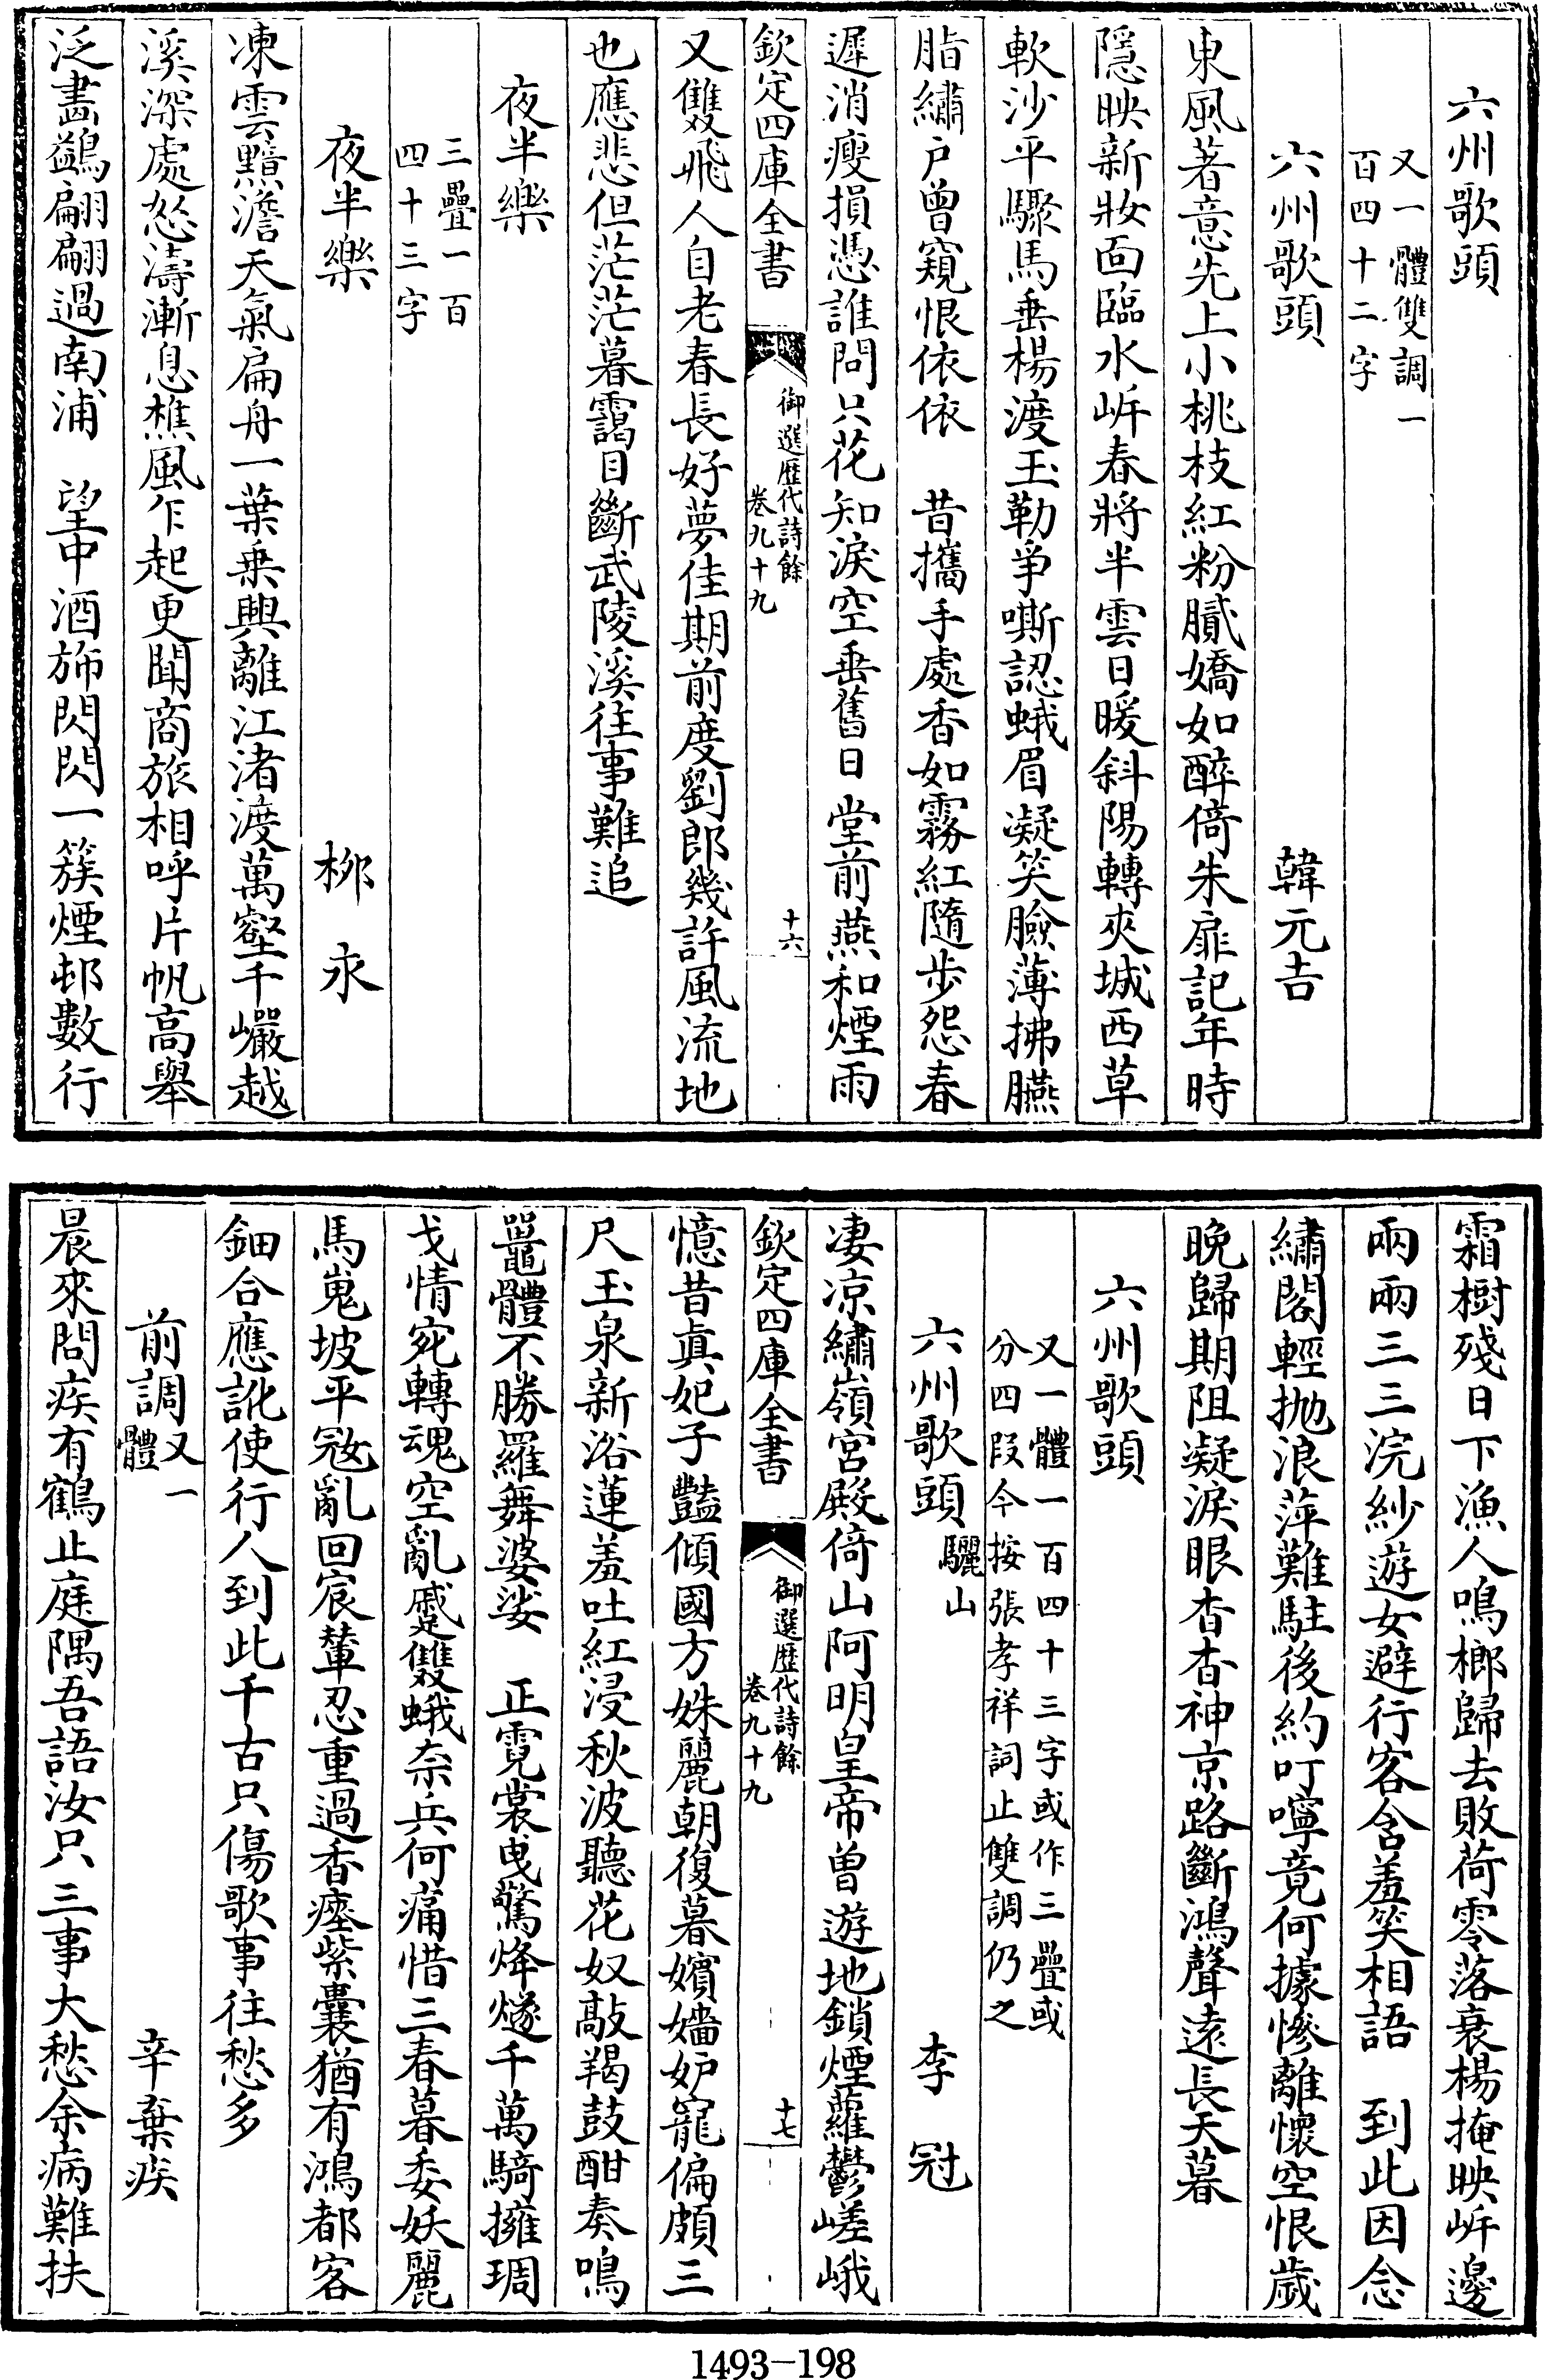 六州歌頭
又一體雙調一
百四十二字
六州歌頭 韓元吉
東風著意先上小桃枝紅粉膩嬌如醉倚朱扉記年時
隱映新妝面臨水岍春將半雲日暖斜陽轉夾城西草
軟沙平驟馬垂楊渡玉勒爭嘶認蛾眉凝笑臉薄拂臙
脂繡户曾窺恨依依 昔攜手處香如霧紅隨步怨春
遲消瘦損憑誰問只花知淚空垂舊日堂前燕和煙雨
欽定四庫全書
御選歷代詩餘
卷九十九
十六
又雙飛人自老春長好夢佳期前度劉郎幾許風流地
也應悲但茫茫暮靄目斷武陵溪往事難追
夜半樂
三疊一百
四十三字
夜半樂 柳永
凍雲黯澹天氣扁舟一葉乗興離江渚渡萬壑千巖越
溪深處怒濤漸息樵風乍起更聞商旅相呼片帆高舉
泛畵鷁翩翩過南浦 望中酒斾閃閃一簇煙邨數行
霜樹殘日下漁人鳴榔歸去敗荷零落衰楊掩映岍邊
兩兩三三浣紗遊女避行客含羞笑相語 到此因念
繡閣輕抛浪萍難駐後約叮嚀竟何據慘離懷空恨歲
晚歸期阻凝淚眼杳杳神京路斷鴻聲遠長天暮
六州歌頭
又一體一百四十三字或作三疊或
分四段今按張孝祥詞止雙調仍之
六州歌頭 驪山 李冠
凄凉繡嶺宮殿倚山阿明皇帝曾遊地鎖煙蘿鬱嵯峨
欽定四庫全書
御選歷代詩餘
卷九十九
十七
憶昔真妃子豔傾國方姝麗朝復暮嬪嬙妒寵偏頗三
尺玉泉新浴蓮羞吐紅浸秋波聽花奴敲羯鼓酣奏鳴
鼉體不勝羅舞婆娑 正霓裳曳驚烽燧千萬騎擁琱
戈情宛轉魂空亂蹙雙蛾奈兵何痛惜三春暮委妖麗
馬嵬坡平冦亂回宸輦忍重過香瘞紫囊猶有鴻都客
鈿合應訛使行人到此千古只傷歌事往愁多
前調 又一
體 辛棄疾
晨來問疾有鶴止庭隅吾語汝只三事大愁余病難扶
1493-198